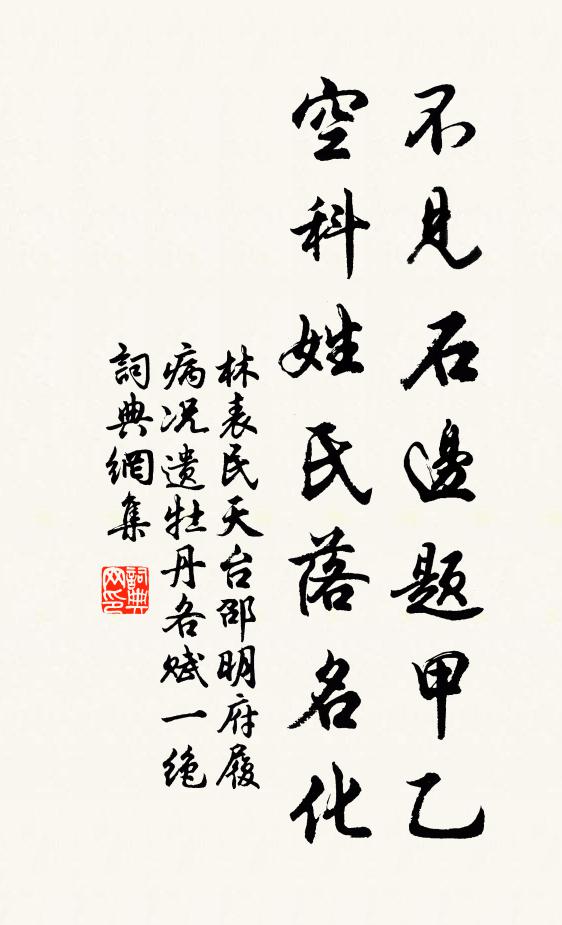 不見石邊題甲乙
空科姓氏落名化
林表民天台邵明府履
病况遗牡丹各赋一绝
詞典網集
詞典
网印